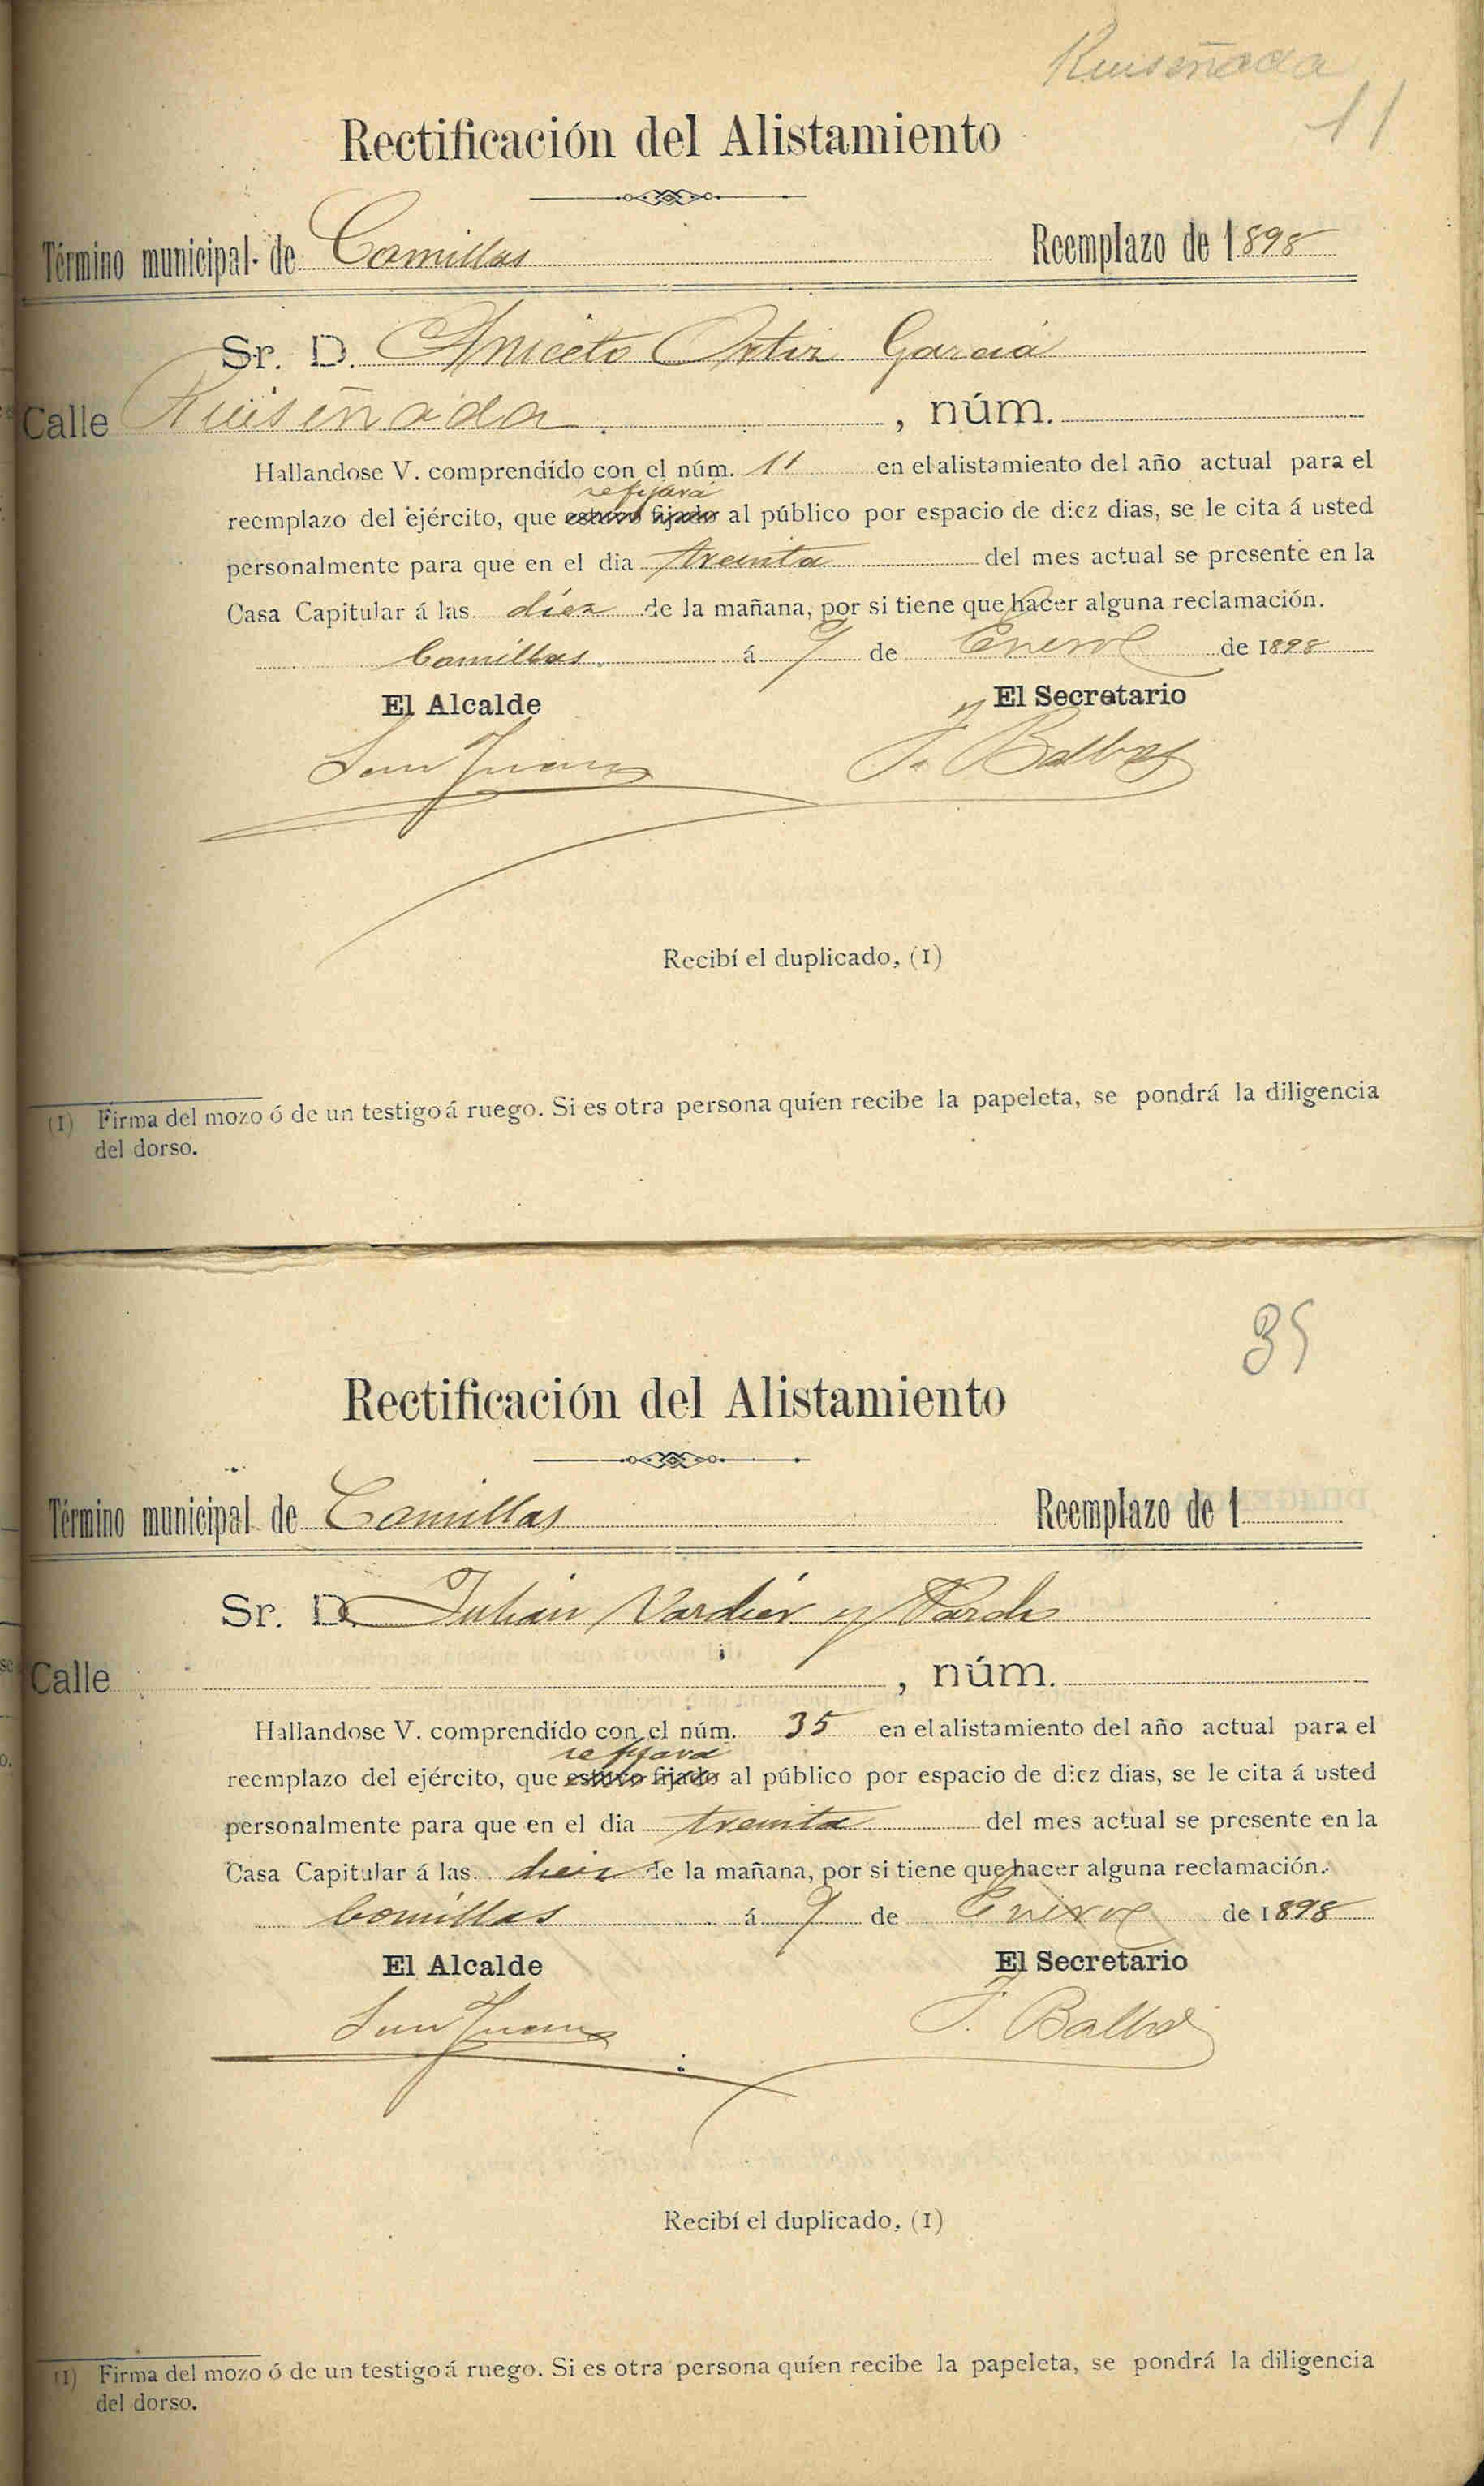 Ruiseñada
11
Rectificación del Alistamiento
Término municipal de Comillas Reemplazo de 1898
Sr. D. Aniceto Ortiz Garcia
Calle Ruiseñada , núm.
Hallandose V. comprendído con el núm. 11 en el alistamiento del año actual para el
se fijará
reemplazo del ejército, que estuvo fijado al público por espacio de diez dias, se le cita á usted
personalmente para que en el dia treinta del mes actual se presente en la
Casa Capitular á las diez de la mañana, por si tiene que hacer alguna reclamación.
Comillas á 9 de Enero de 1898
El Alcalde El Secretario
San Juan J. Balbas
Recibí el duplicado, (1)
(1) Firma del mozo ó de un testigo á ruego. Si es otra persona quíen recibe la papeleta, se pondrá la diligencia
del dorso.
35
Rectificación del Alistamiento
Término municipal de Comillas Reemplazo de 1
Sr. D. Julián y
Calle , núm.
Hallandose V. comprendído con el núm. 35 en el alistamiento del año actual para el
se fijará
reemplazo del ejército, que estuvo fijado al público por espacio de diez dias, se le cita á usted
personalmente para que en el dia treinta del mes actual se presente en la
Casa Capitular á las diez de la mañana, por si tiene que hacer alguna reclamación.
Comillas á 9 de Enero de 1898
El Alcalde El Secretario
San Juan J. Balbas
Recibí el duplicado, (1)
(1) Firma del mozo ó de un testigo á ruego. Si es otra persona quíen recibe la papeleta, se pondrá la diligencia
del dorso.